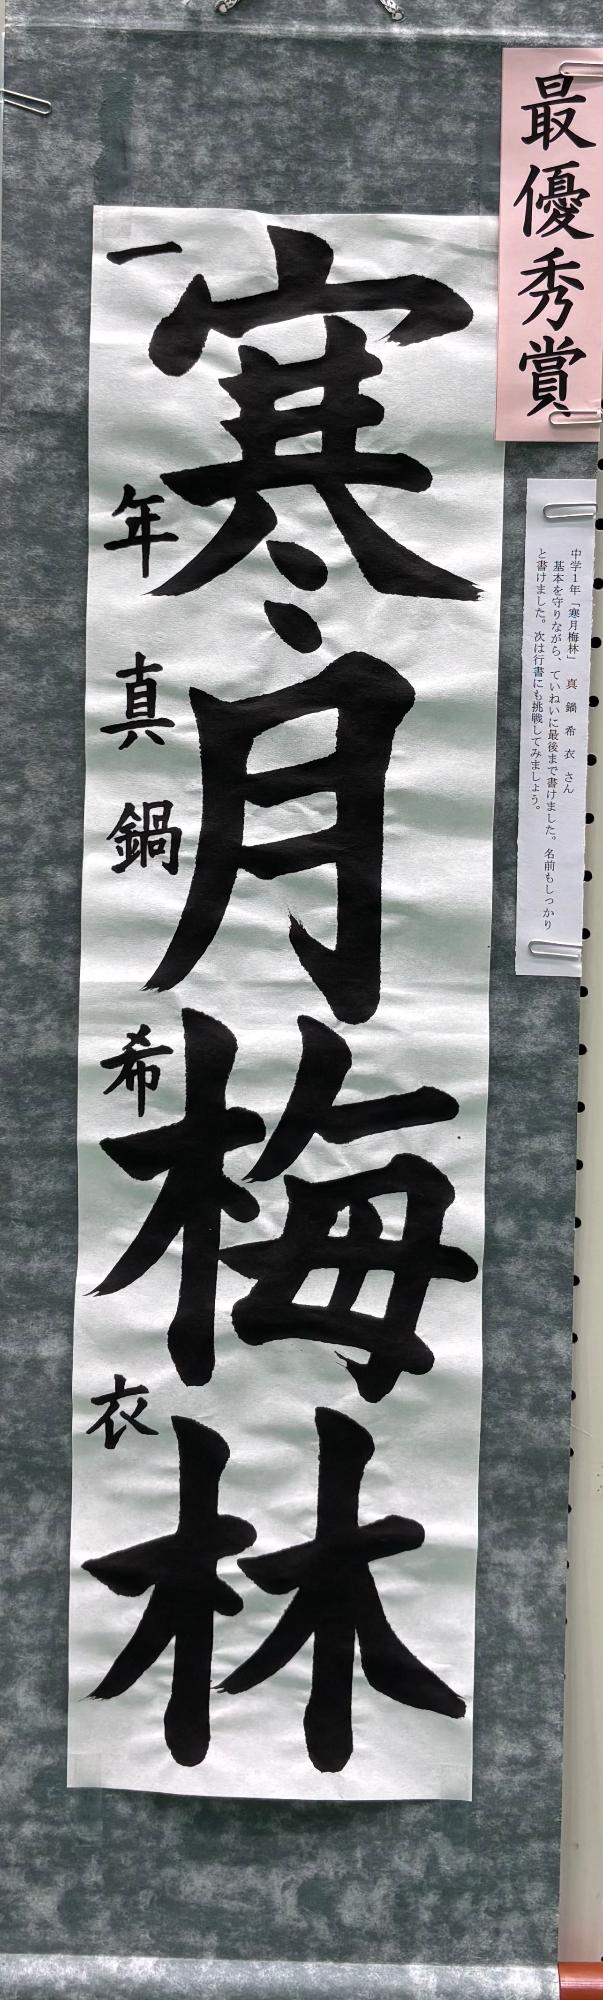 最優秀賞
中学1年「寒月梅林」 真鍋希衣さん
基本を守りながら、ていねいに最後まで書けました。名前もしっかり
と書けました。次は行書にも挑戦してみましょう。
寒月梅林
一年真鍋希衣